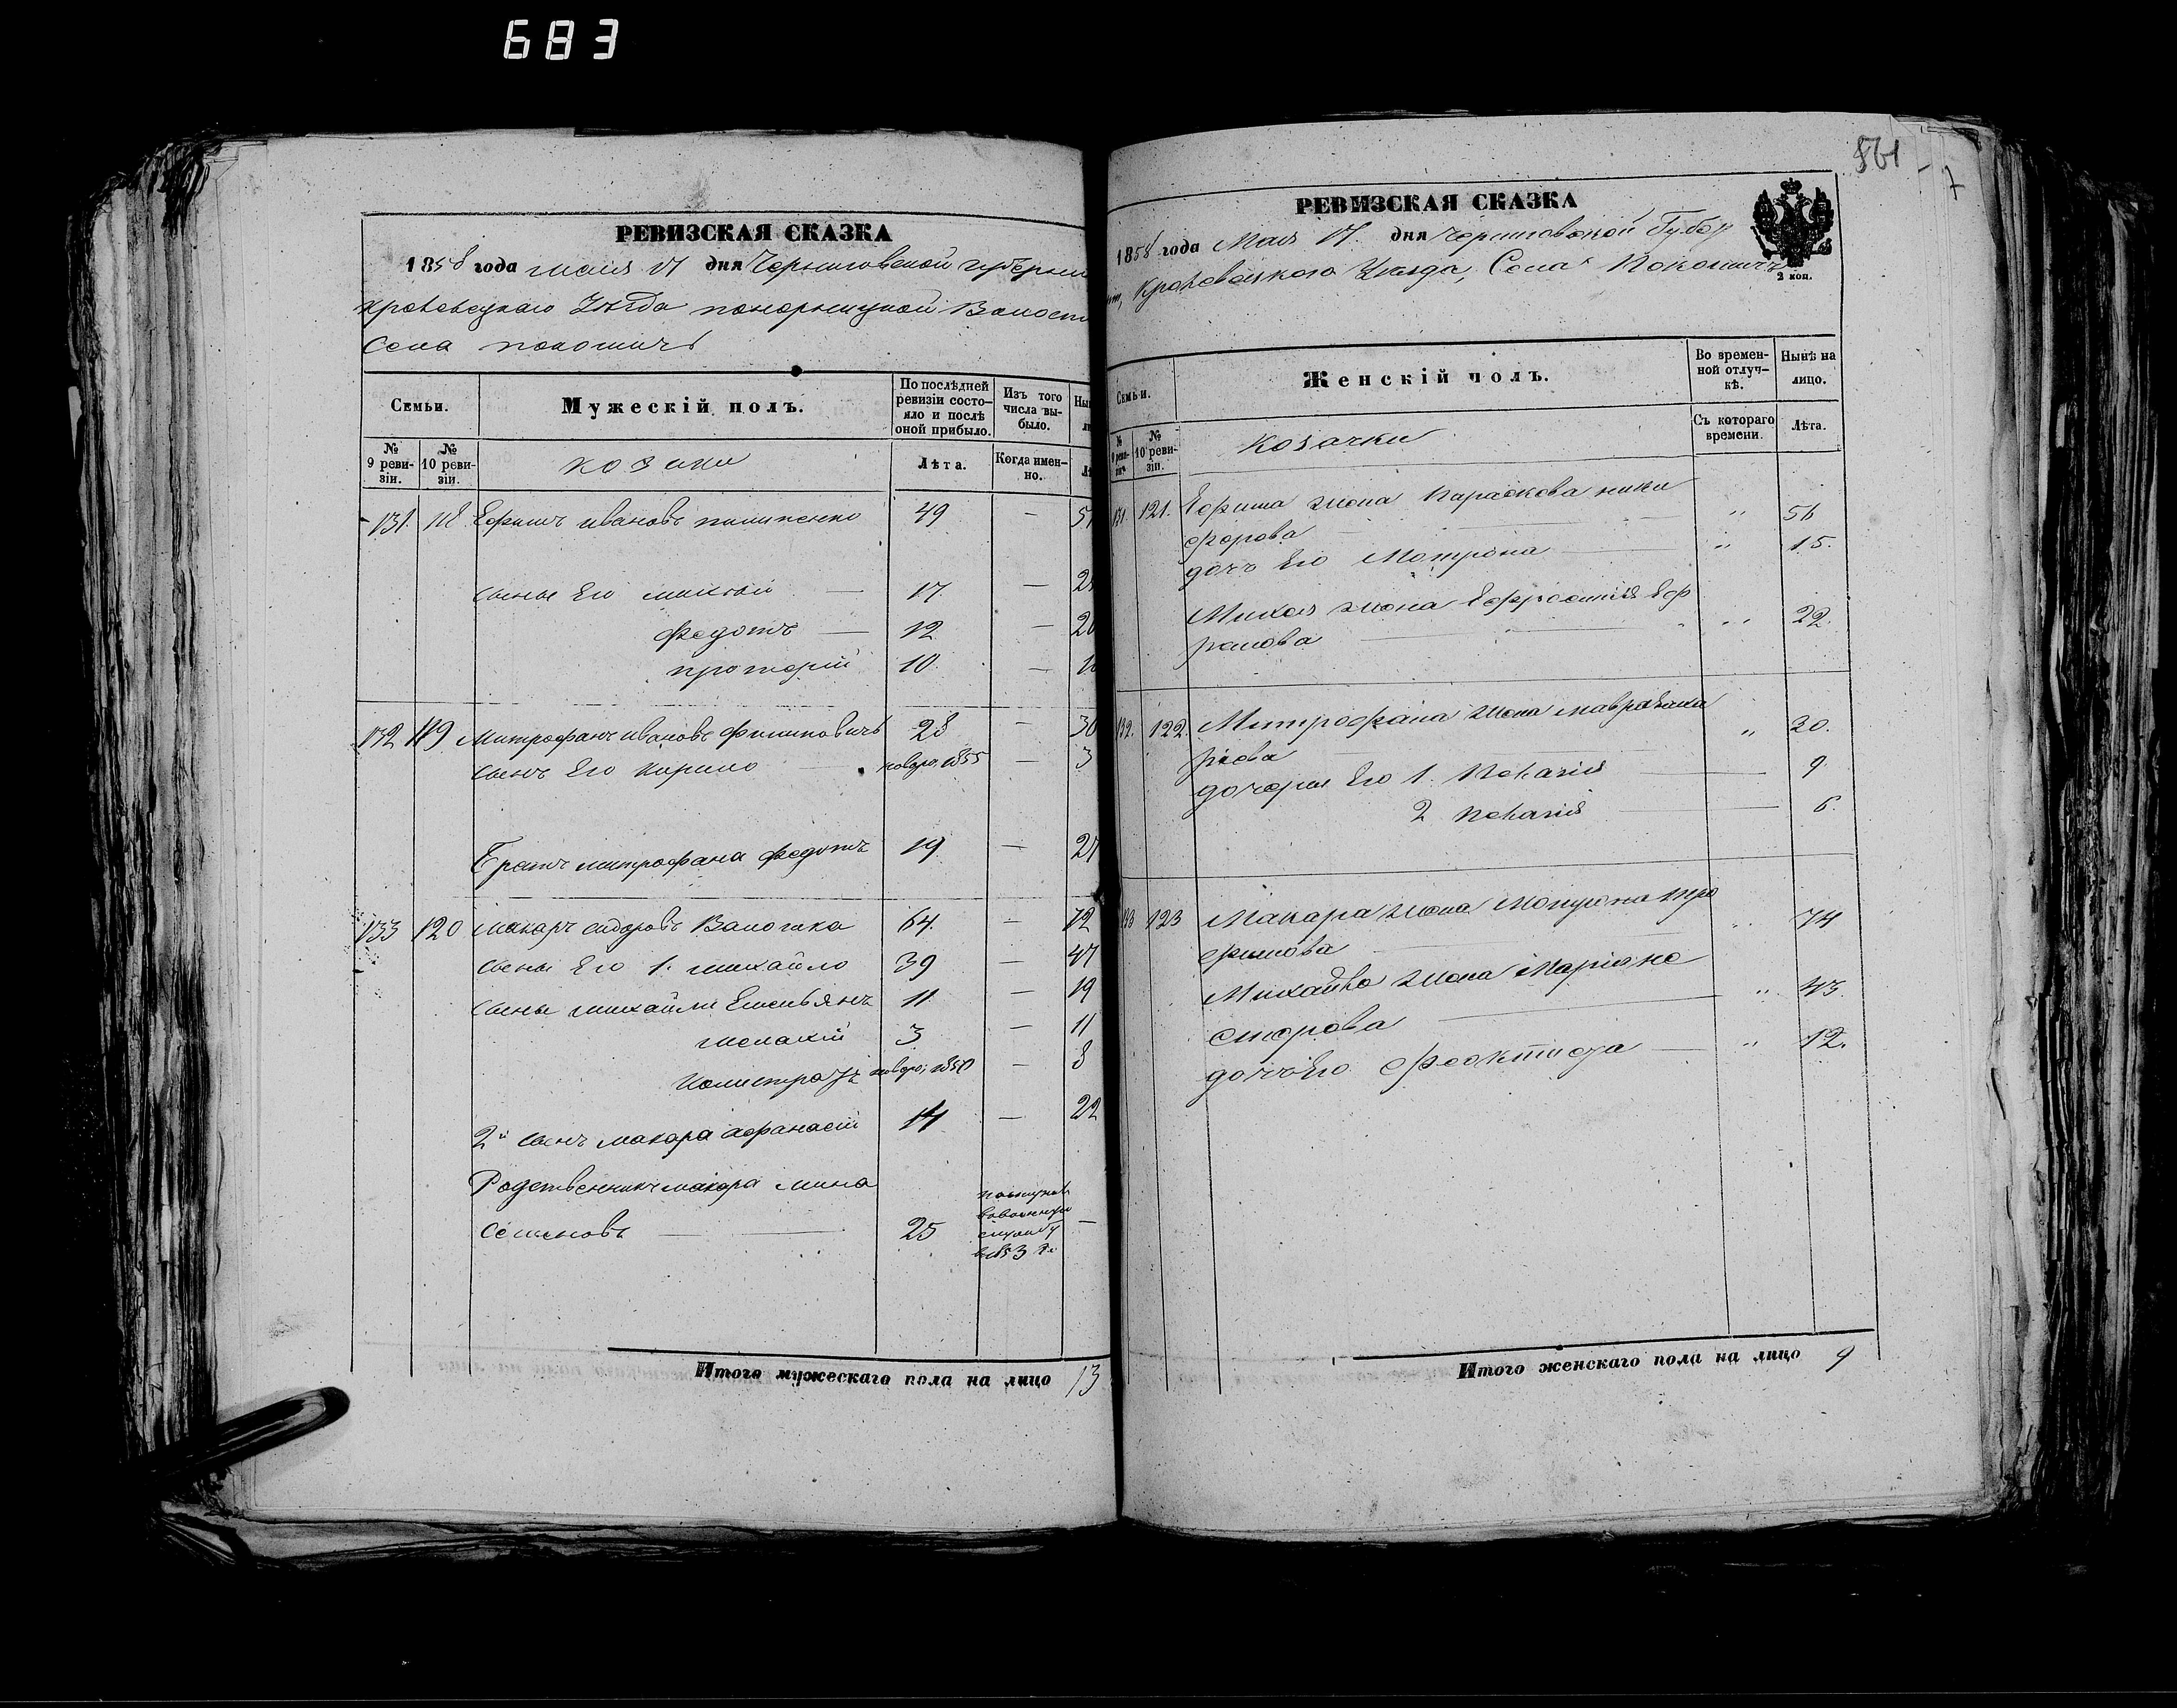 683
РЕВИЗСКАЯ СКАЗКА
1858 года мая 17 дня Черниговской губерни
кролевецкаго Уезда понорницкой Волости
Села покошичь
Семьи.
Мужескій полъ.
По послѣдней ревизіи состояло и послѣ оной прибыло.
Изъ того числа выбыло.
№ 9 ревизіи.
№ 10 ревизіи.
козаки
Лѣта.
Когда именно.
131. 118 Ефимъ ивановъ пилипенко 49 —
сыны Его — 17 —
федотъ — 12 — 20
10 —
132 119 Митрофанъ ивановъ филиповичь 28 — 30
сынъ Его Кирило новоро. 1855 — 3
Братъ митрофана федотъ 19 — 27
133 120 макаръ сидоровъ Валошка 64. — 72
сыны Его 1. михайло 39 — 47
сыны михайлы Емельянъ 11 — 19
3 — 11
Калистратъ новоро; 1850 — 8
2й сынъ макара афанасій 14 — 22
Родственникъ макара мина
Семеновъ — 25
поступилъ в военную службу в 1853 го —
Итого мужескаго пола на лицо 13
861
7
РЕВИЗСКАЯ СКАЗКА
1858 года Мая 17. дня Черниговской Губер
нии, Кролевецкого Уезда, Села Покошичъ
2 коп.
Семьи.
Женскій полъ.
Во временной отлучкѣ.
Нынѣ на лицо.
№ 9 ревизіи.
№ 10 ревизіи.
Козачки
Съ котораго времени.
Лѣта.
131. 121. Ефима жена Параскова ники
форова — " 56
дочь Его Мотрона — " 15.
жена Ефросинія Еф
ремова — " 22.
132. 122. Митрофана жена
" 30.
дочери Его 1. Пелагія — 9
2 Пелагія — 6.
133 123 Макара жена Мотрона тро
фимова — " 74
Михайла жена Маріяна
— " 43.
дочь Его Феоктиста — " 12.
Итого женскаго пола на лицо 9